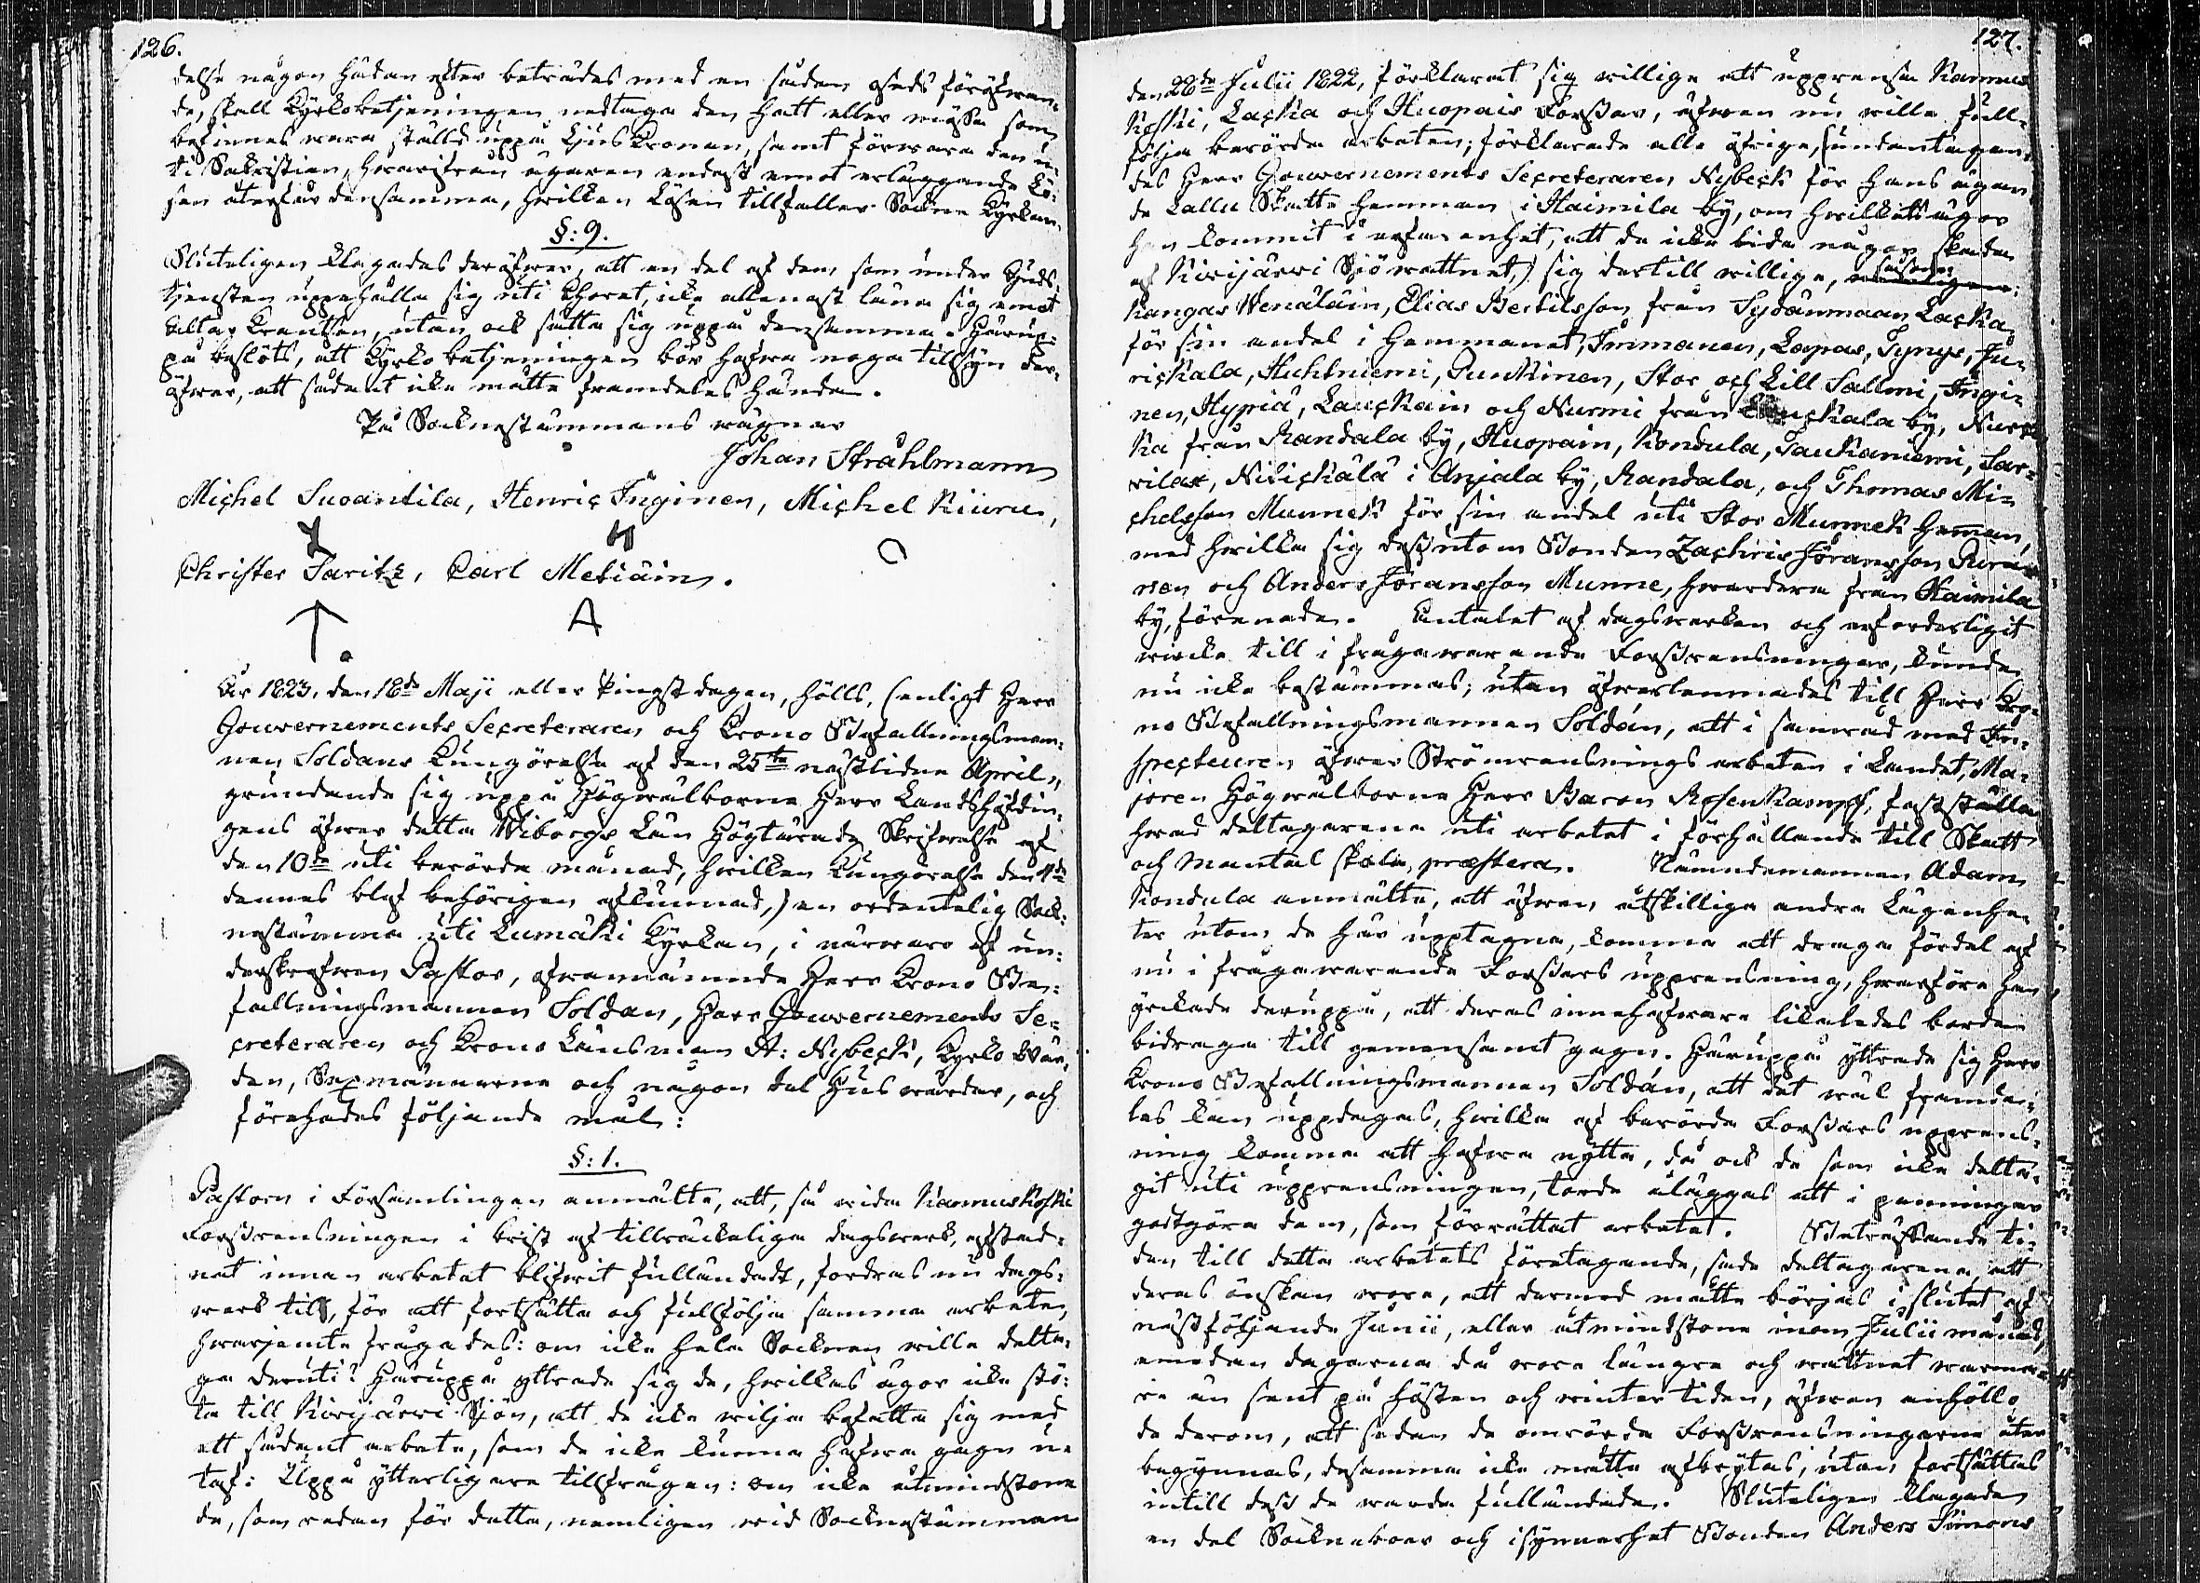 126.
delse någon hädan efter beträdes med en sådan oseds föröfwan-
de, skall Kyrkobetjeningen nedtaga den hatt eller mössa som
befinnes wara ställd uppå Ljus Kronan, samt förwara den u-
ti Sakristian, hwarifrån ägaren endast emot erläggande Lö-
sen återfår densamma, hwilken Lösen tillfaller Sockne Kyrkan.
§: 9.
Sluteligen klagades deröfwer, att en del af dem som under Guds
tjensten uppehålla sig uti Choret, icke allenast läna sig emot
Altar Krantsen, utan ock sätta sig uppå densamma. Härup-
på beslöts, att Kyrko betjeningen bör hafwa noga tillsyn der-
öfwer, att sådant icke måtte framdeles hända.
På Socknestämmans wägnar
Johan Stråhlmann
Michel Suoantila, Henric Inginen, Michel Kiiuru,
Christer Taritz, Carl Metiäin.
År 1823, den 18de Maji eller Pingstdagen, hölls, (enligt Herr
Gouvernements Secreteraren och Krono Befallningsman-
nen Soldans Kungörelse af den 25te nästlidne April,
grundande sig uppå Högwälborne Herr Landshöfdin-
gens öfwer detta Wiborgs Län Högtärade Skrifwelse af
den 10de uti berörde månad, hwilken Kungörelse den 4de
dennes blef behörigen afkunnad,) en ordentelig Sock-
nestämma uti Lumäki Kyrkan, i närwaro af un-
derskrefwen Pastor, ofwannämnde Herr Krono Be-
fallningsmannen Soldan, Herr Gouvernements Se-
creteraren och Krono Länsman A: Nybeck, Kyrko Wär-
den, Sexmännerne och någon del Husbönder, och
förehades följande mål:
§: 1.
Pastorn i Församlingen anmälte, att, så wida Kannuskoski
Forssrensningen i brist af tillräckeliga dagswerk, afstad-
nat innan arbetet blifwit fulländadt, fordras nu dags-
werk till, för att fortsätta och fullfölja samma arbete,
hwarjemte frågades: om icke hela Socknen wille delta-
ga deruti? Häruppå yttrade sig de, hwilkas ägor icke stö-
ta till Kiwijärwi Sjön, att de icke wilja befatta sig med
ett sådant arbete, som de icke kunna hafwa gagn u-
taf: Uppå ytterligare tillfrågan: om icke åtminstone
de, som redan för detta, nemligen wid Socknestämman
127.
den 28de Julii 1822, förklarat sig willige att upprensa Kannus
koski, Lacka och Huopais Forssar, äfwen nu wille full-
följa berörde arbeten; förklarade alle öfrige, (undantagan-
des Herr Gouvernements Secreteraren Nybeck för hans ägan-
de Lallu Skatte hemman i Haimila by, om hwilkets ägor
han kommit i erfarenhet, att de icke lida någon skada
af Kiwijärwi Sjö wattnet,) sig dertill willige,
Kangas Wenäläin, Elias Bertilsson från Sydänmaan Lacka
för sin andel i hemmanet, Immanen, Lapas, Tynys, Ju-
rickala, Huhtniemi, Punkinen, Stor och Lill Sallmi, Ingi-
nen, Hypiä, Lauckain och Nurmi från Lauckala by, Nurk-
ka från Randala by, Huopain, Kondula, Taukaniemi, Sar-
wilax, Nitickälä i Anjala by, Randala, och Thomas Mi-
chelsson Munnek för sin andel uti Stor Munnek heman,
med hwilka sig dessutom Bonden Zachris Jöransson Puran-
nen och Anders Jöransson Munne, hwardera från Haimila
by, förenade. Antalet af dagswerken och erforderligit
wircke till i fråga warande Forssrensningar, kunde
nu icke bestämmas; utan öfwerlemnades till Herr Kro-
no Befallningsmannen Soldán, att i samråd med In-
specteuren öfwer Strömrensnings arbeten i Landet, Ma-
joren Högwälborne Herr Baron Rosenkampff, fastställa
hwad deltagarena uti arbetet i förhållande till Skatt
och Mantal skola præstera. Nämndemannen Adam
Kondula anmälte, att äfwen åtskillige andra Lägenhe-
ter utom de här upptagne, komma att draga fördel af
nu i fråga warande Forssars upprensning, hwarföre han
yrkade deruppå, att deras innehafware likaledes borde
bidraga till gemensamt gagn. Häruppå yttrade sig Herr
Krono Befallningsmannen Soldán, att det wäl framde-
les kan uppdagas, hwilka af berörde Forssars upprens-
ning komma att hafwa nytta, då ock de som icke delta-
git uti upprensningen, torde åläggas att i penningar
godtgöra dem, som förrättat arbetet. Beträffande ti-
den till detta arbetets företagande, sade deltagarena, att
deras önskan wore, att dermed måtte börjas i slutet af
nästföljande Junii, eller åtminstone inom Julii månad,
emedan dagarna då wore längre och wattnet warma-
re än sent på hösten och winter tiden, äfwen anhöllo
de derom, att sedan de omrörde Forssrensningarne åter
begynnas, desamma icke måtte afbrytas, utan fortsättas
intill dess de warda fulländade. Sluteligen klagade
en del Sockneboer och isynnerhet Bonden Anders Simons